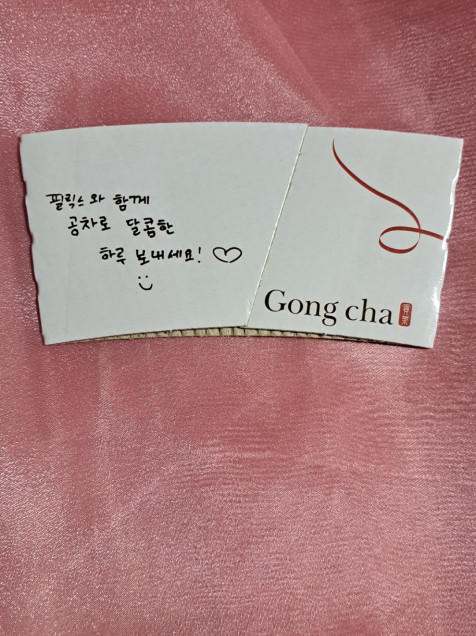 필릭스와 함께
공차로 달콤한
하루 보내세요!
Gong cha
貢茶